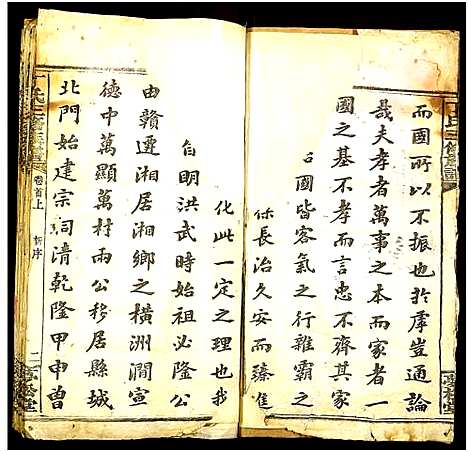 而國所以不振也於虖豈通論
哉夫孝者萬事之本而家者一
國之基不孝而言忠不齊其家
國皆客氣之行雜霸之
保長治久安而臻隹
化此一定之理也我
自明洪武時始祖必隆公
由贛遷湘居湘鄉之橫洲澗宣
德中萬顯萬村兩公移居縣城
北門始建宗祠清乾隆甲申曾
卷首上
新序
二